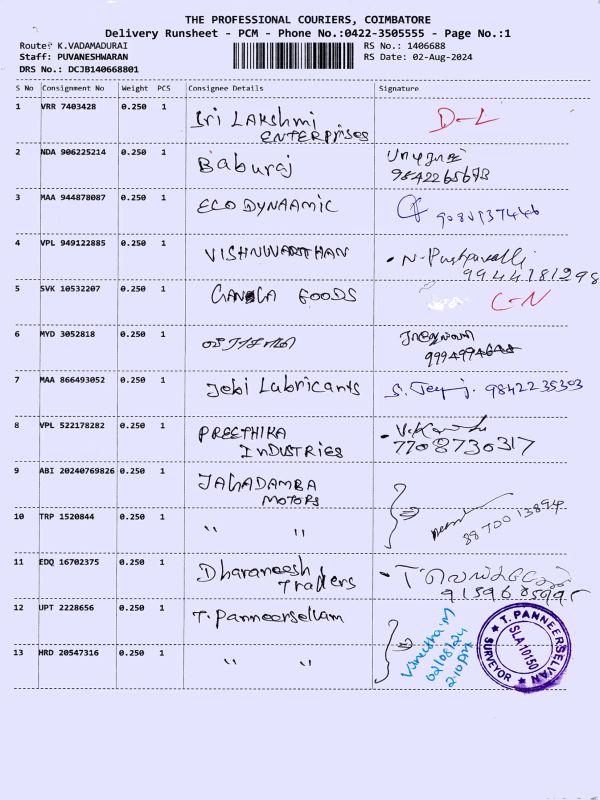 THE PROFESSIONAL COURIERS, COIMBATORE
Delivery Runsheet - PCM - Phone No.:0422-3505555 - Page No.:1
Route: K.VADAMADURAI RS No.: 1406688
Staff: PUVANESHWARAN RS Date: 02-Aug-2024
DRS No.: DCJB140668801
S No Consignment No Weight PCS Consignee Details Signature
1 VRR 7403428 0.250 1 Sri LAKshmi D-L
ENTERPRISES
2 NDA 906225214 0.250 1 Baburaj
9842265673
3 MAA 944878087 0.250 1 ECO DYNAAMIC
4 VPL 949122885 0.250 1 VISHNUVARTHAN
9944781298
5 SVK 10532207 0.250 1 GANGA FOODS C-N
6 MYD 3052818 0.250 1
7 MAA 866493052 0.250 1 Jebi Lubricants 9842235303
8 VPL 522178282 0.250 1 PREETHIKA
INDUSTRIES 7708730317
9 ABI 20240769826 0.250 1 JAGADAMBA
MOTORS
10 TRP 1520844 0.250 1 " " 88700 13894
11 EDQ 16702375 0.250 1 Dharaneesh
Traders
12 UPT 2228656 0.250 1 T. Panneersellam
Vineetha.M
02/08/24
2:10 PM
T. PANNEERSELVAN
SLA 10150
SURVEYOR
13 HRD 20547316 0.250 1 " "